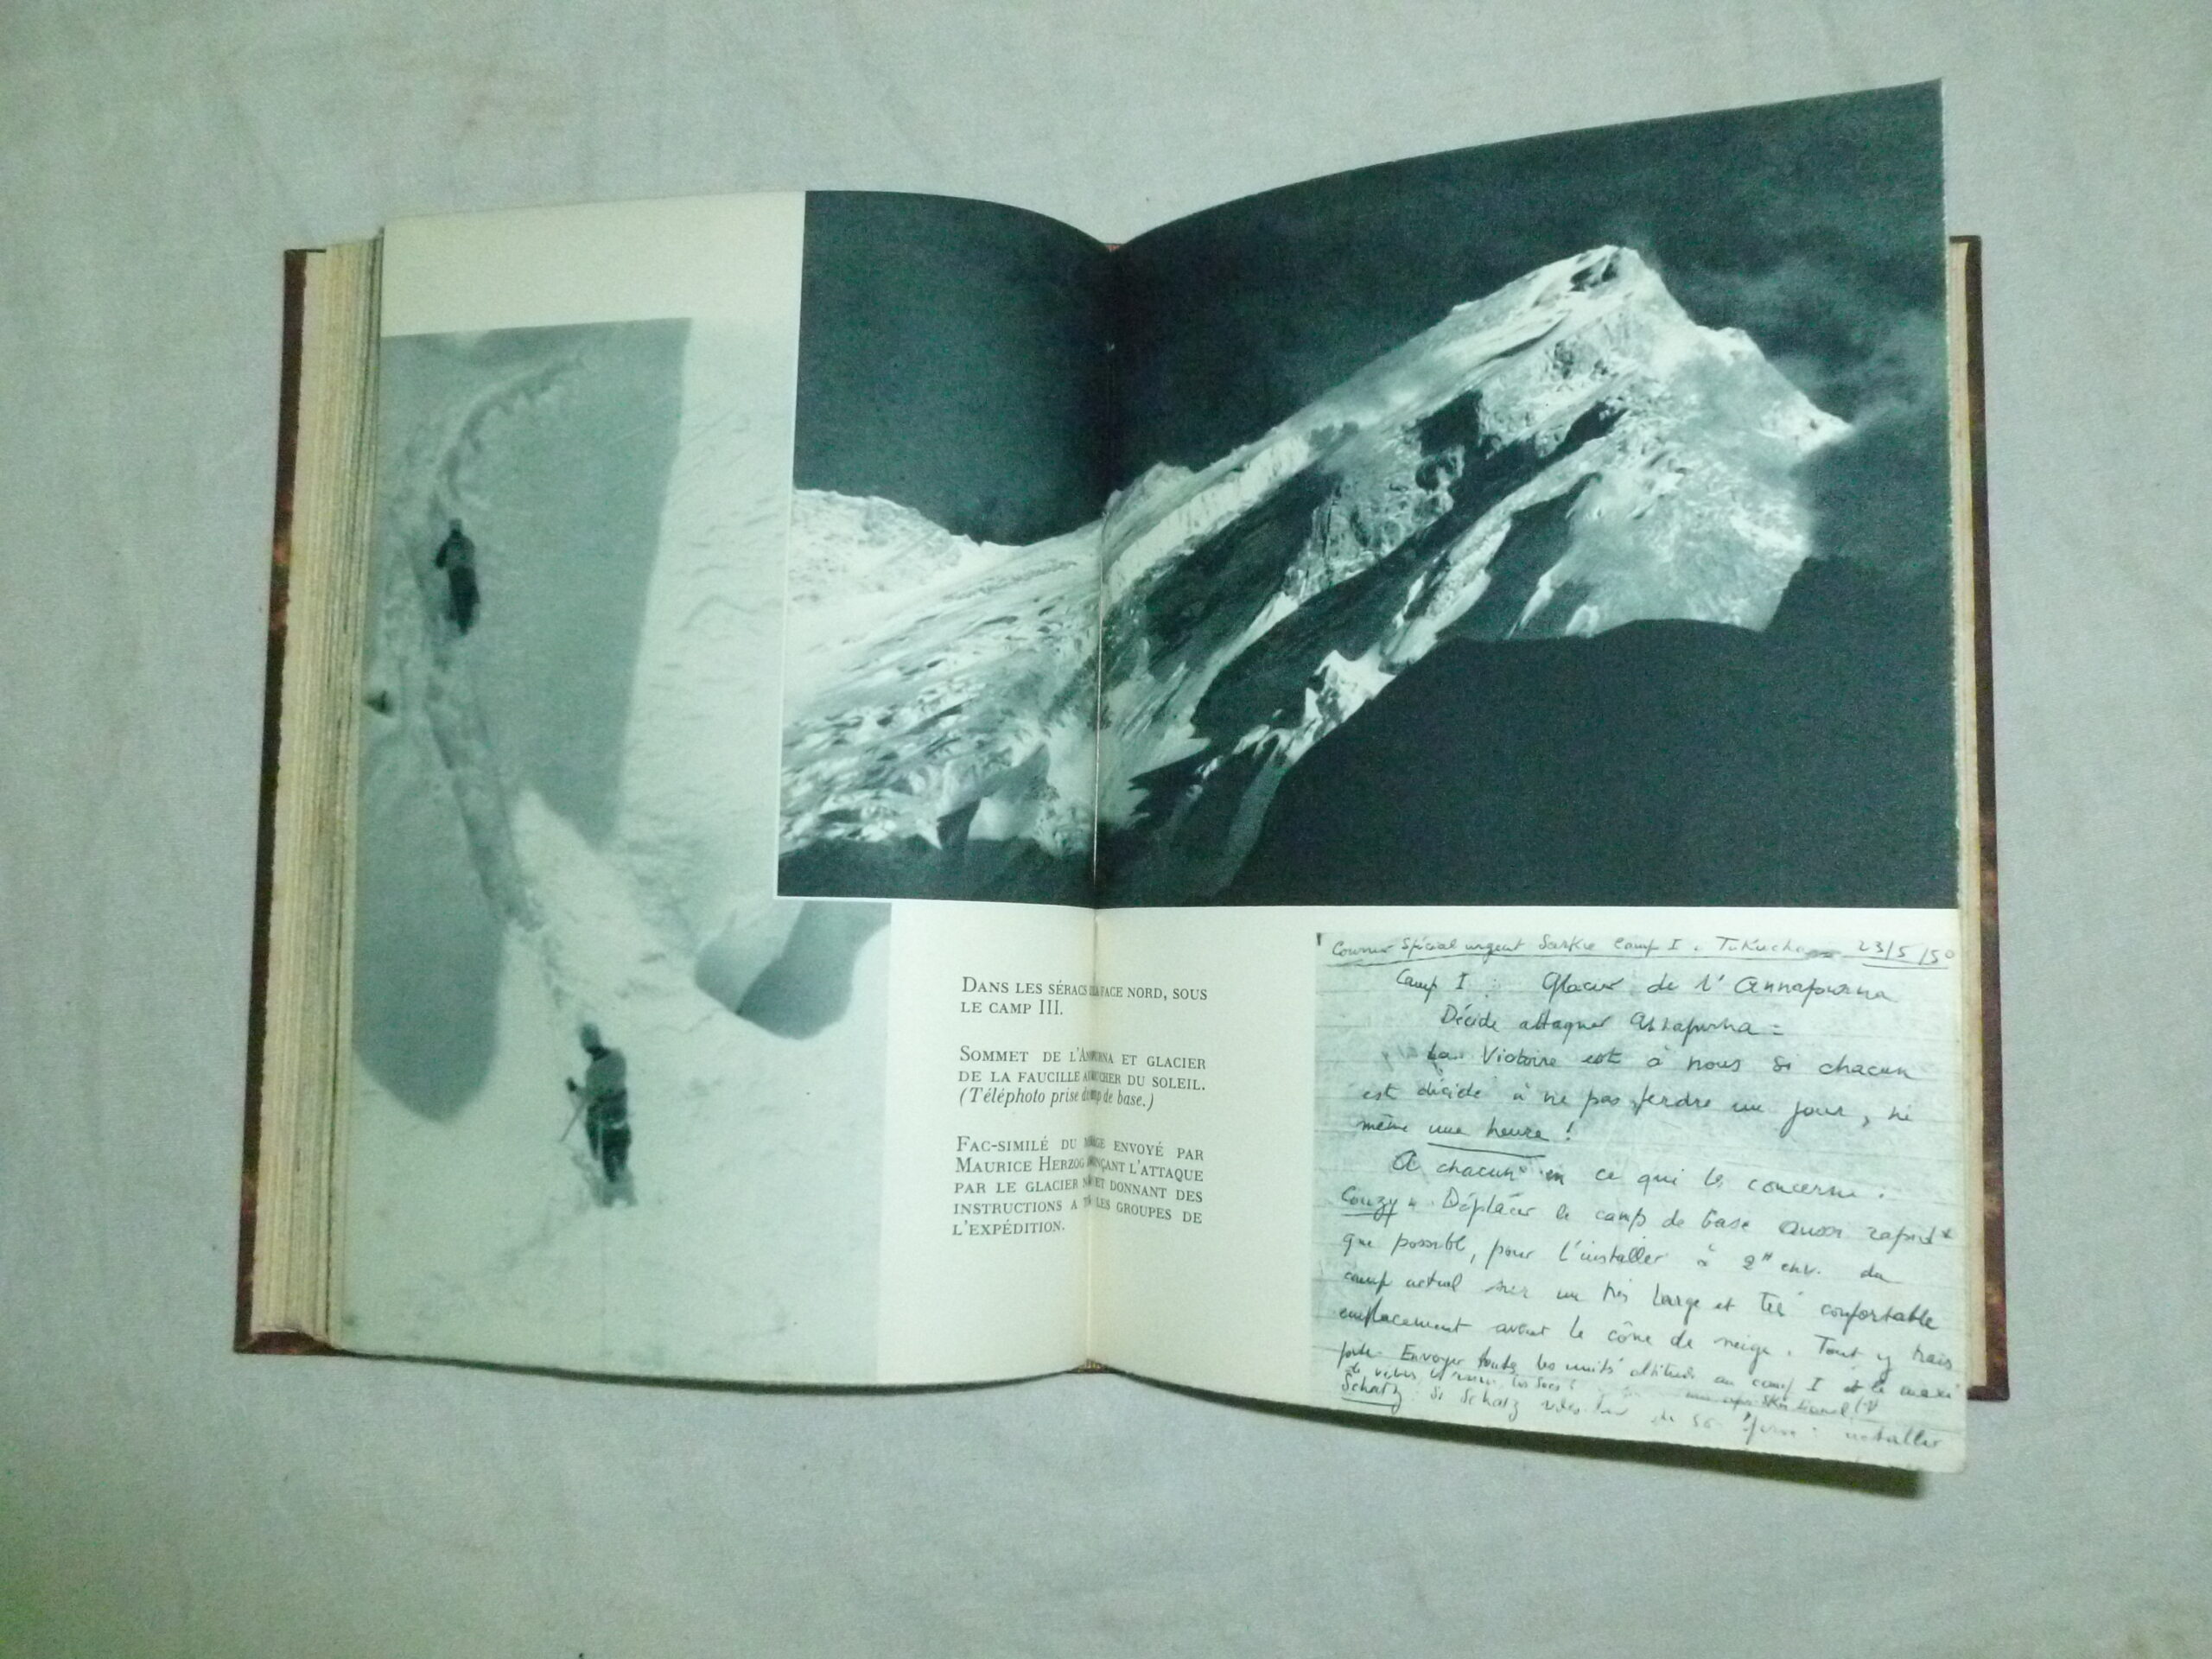 DANS LES SÉRACS FACE NORD, SOUS
LE CAMP III.
SOMMET DE L'ANNAPURNA ET GLACIER
DE LA FAUCILLE AU COUCHER DU SOLEIL.
(Téléphoto prise du camp de base.)
FAC-SIMILÉ DU MESSAGE ENVOYÉ PAR
MAURICE HERZOG ANNONÇANT L'ATTAQUE
PAR LE GLACIER NORD ET DONNANT DES
INSTRUCTIONS A TOUS LES GROUPES DE
L'EXPÉDITION.
Courrier Spécial urgent Sarkie Camp I. Tukucha 23/5/50
Camp I : Glacier de l'Annapurna
Décide attaquer Annapurna =
La Victoire est à nous si chacun
est décidé à ne pas perdre un jour, ni
même une heure !
A chacun en ce qui les concerne :
Couzy : Déplacer le camp de base aussi rapidt
que possible, pour l'installer à 2H env. du
camp actuel sur un très large et très confortable
emplacement avant le cône de neige. Tout y
Envoyer toutes les unités altitude au camp I et le maxi
de vivres
Schatz Si Schatz installer